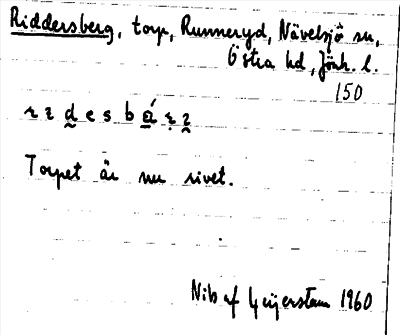 Riddersberg, torp, Runneryd, Nävelsjö sn,
Östra hd, Jönk. l.
150
Torpet är nu rivet.
Nils af Geijerstam 1960